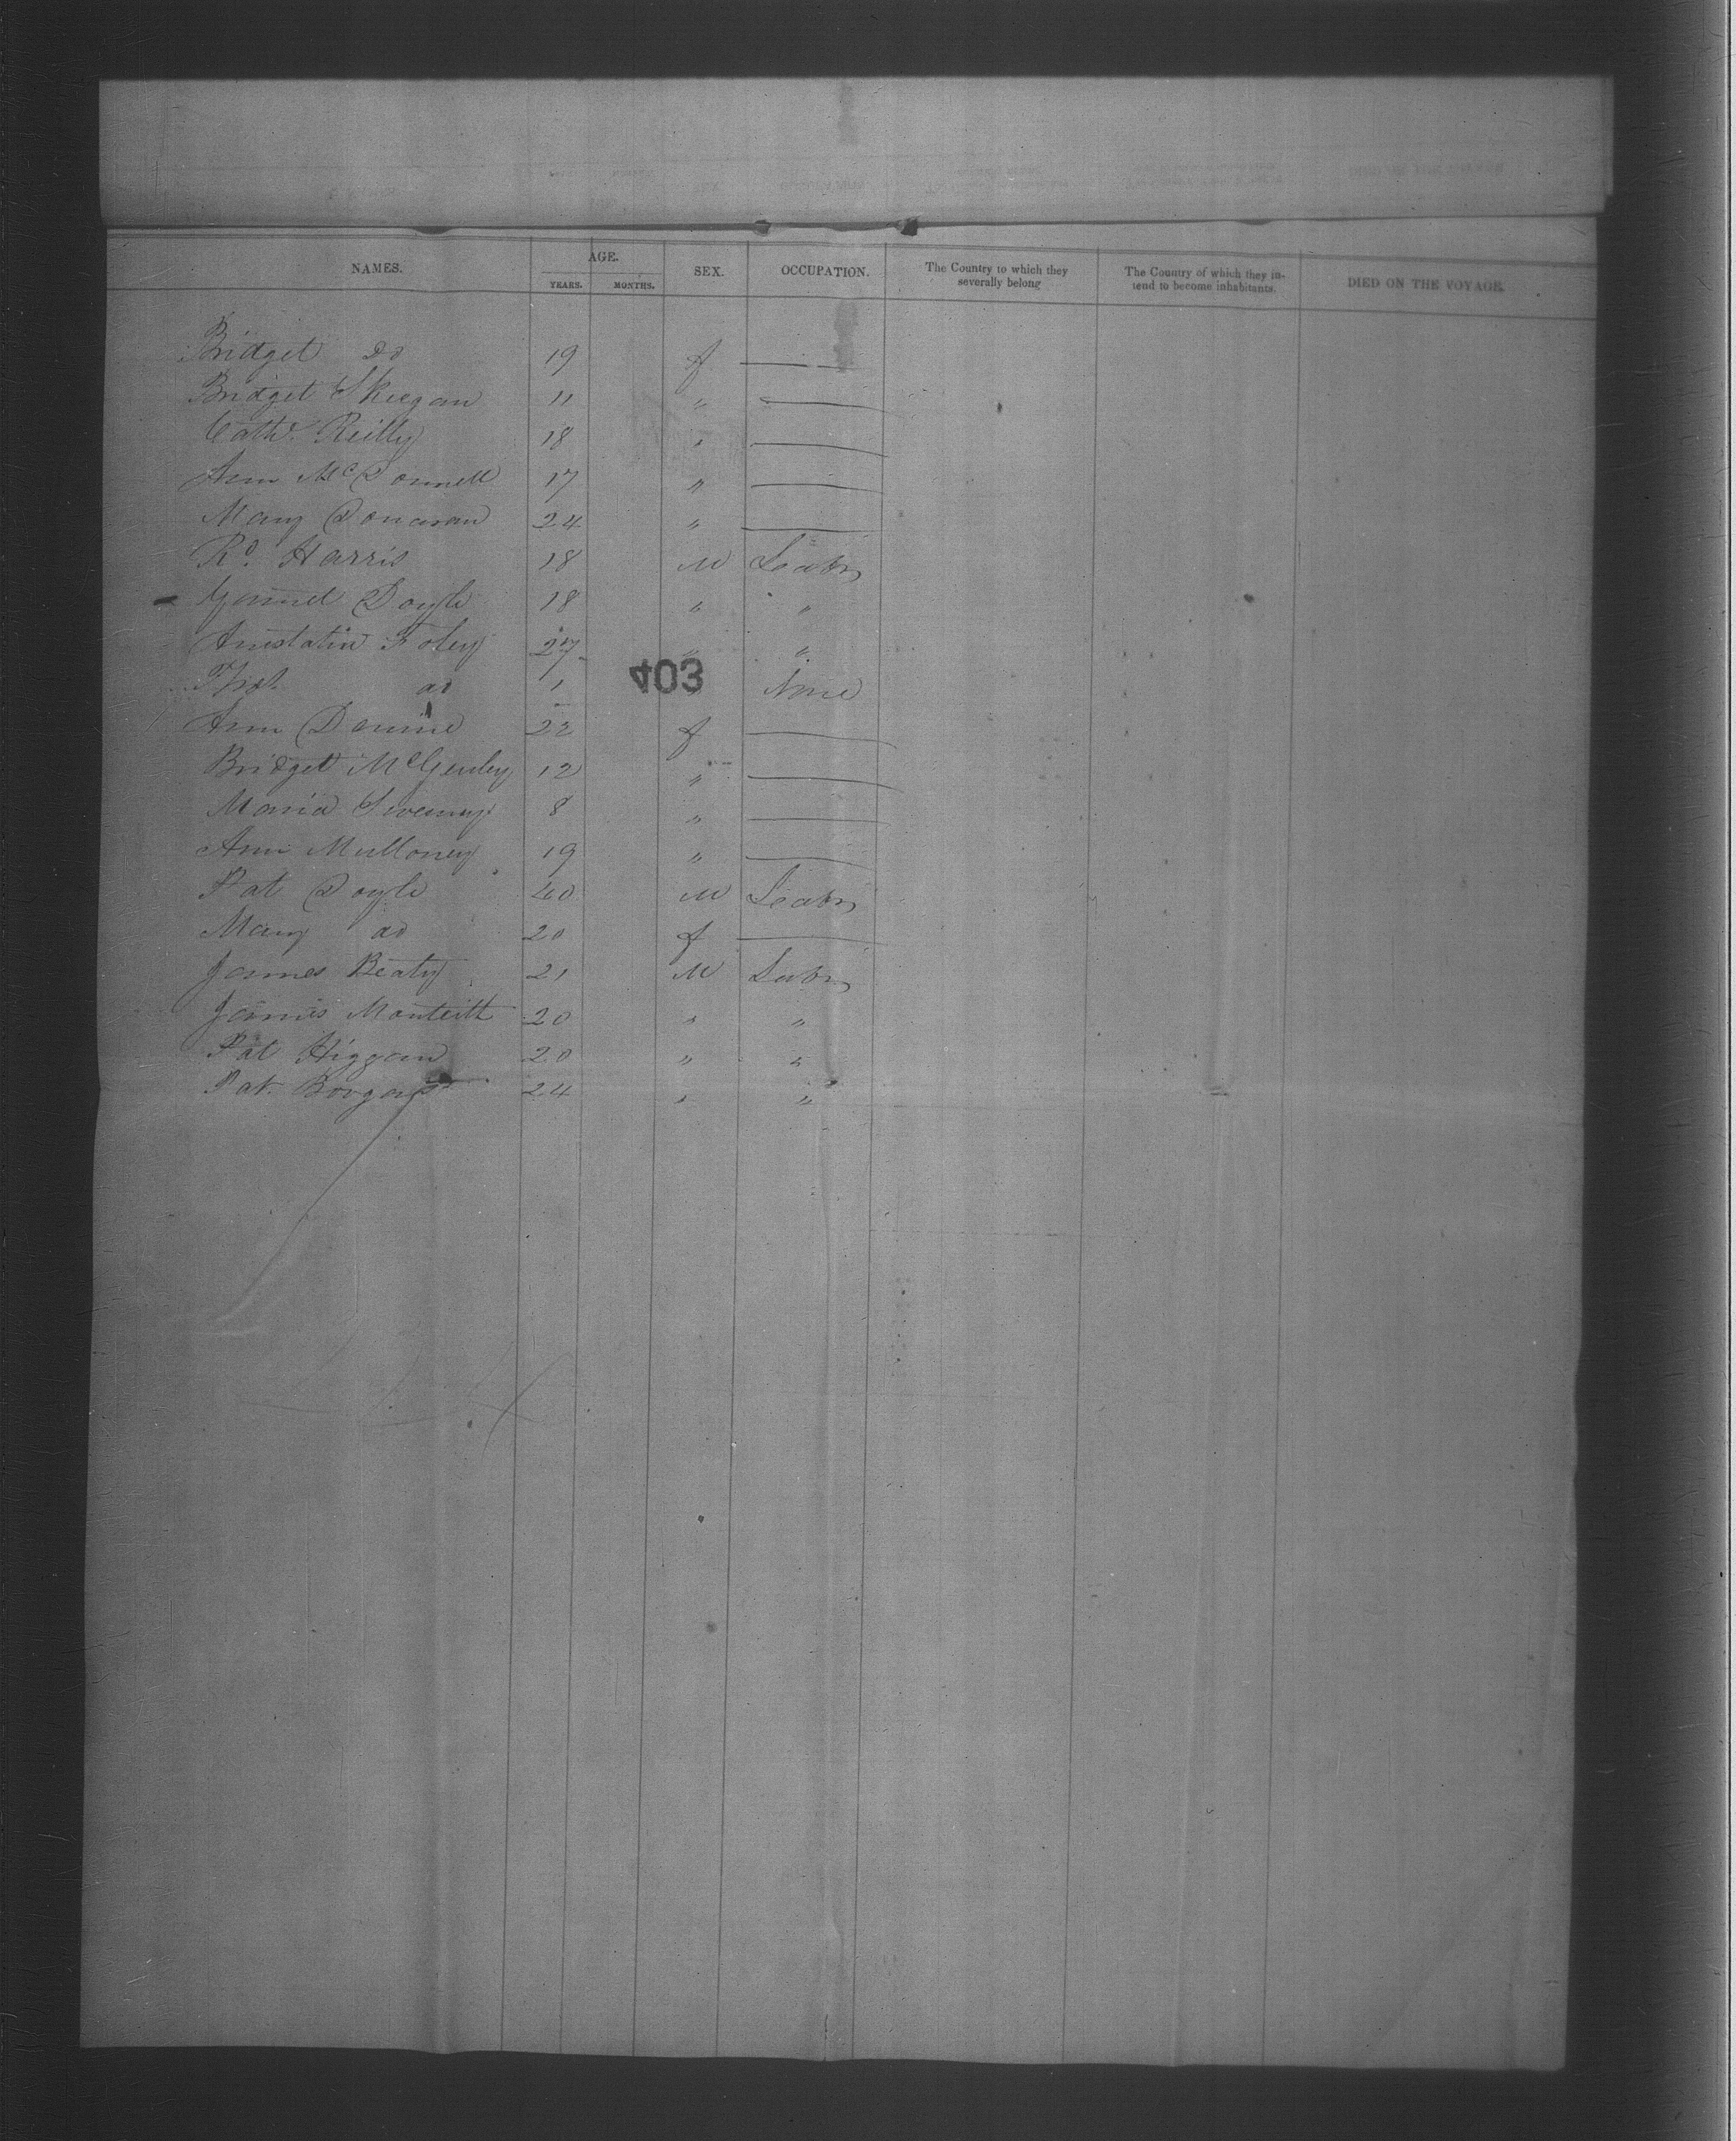 NAMES. AGE. YEARS. MONTHS. SEX. OCCUPATION. The Country to which they severally belong The Country of which they intend to become inhabitants. DIED ON THE VOYAGE.
Bridget Do 19 f —
Bridget Skeegan 11 " —
Cathe. Reilly 18 " —
Ann McDonnell 17 " —
Mary Donavan 24 " —
Rd. Harris 18 M Labr
Doyle 18 " "
Foley 27 " "
do 1 " None
403
Ann 22 f —
Bridget McGenley 12 " —
Maria Sweeney 8 " —
Ann Mulloney 19 " —
Pat Doyle 40 M Labr
Mary do 20 f —
James Beaty 21 M Labr
James Monteith 20 " "
Pat Higgan 20 " "
Pat. 24 " "